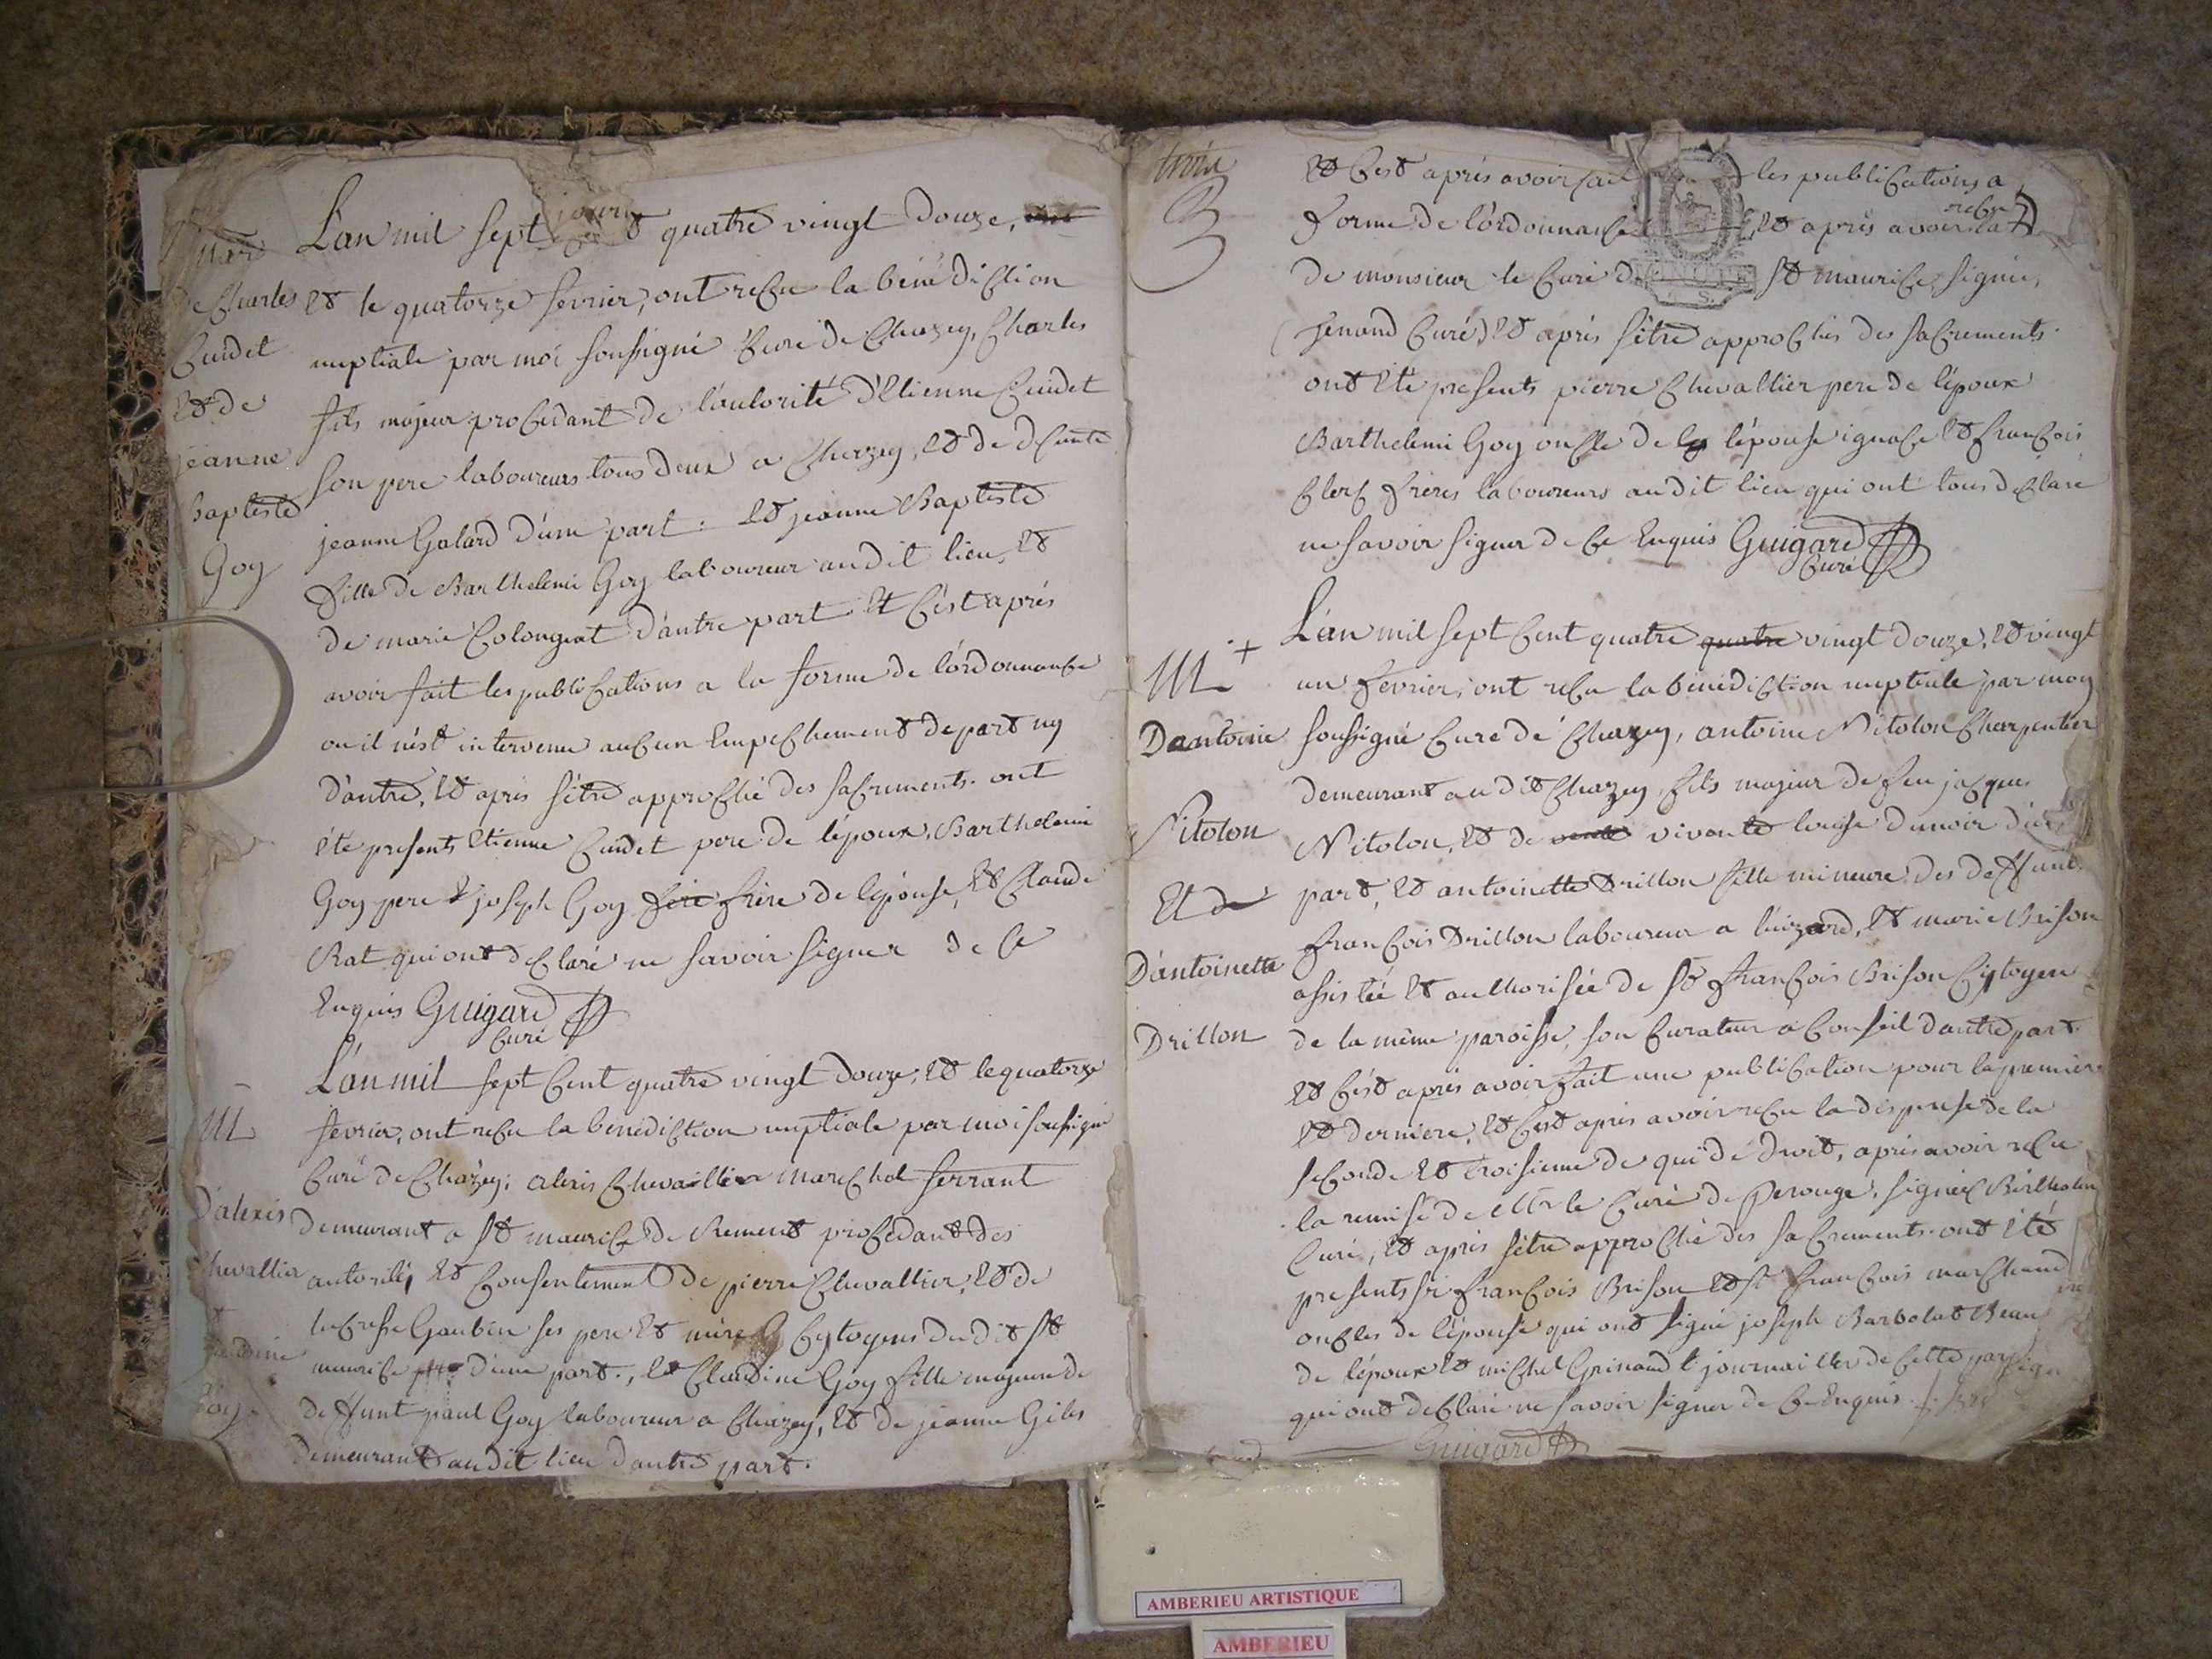 mar
de Charles
Cuidet
et de
jeanne
baptiste
Goy
L'an mil sept cent quatre vingt douze,
et le quatorze fevrier, ont recu la bénédiction
nuptiale par moi soussigné Curé de Chazey, Charles
fils majeur procedant de l'autorité d'Etienne Cuidet
son pere laboureurs tous deux a Chazey, et de defunte
jeanne Galard d'une part : et jeanne Baptiste
fille de Barthelemi Goy laboureur audit lieu, et
de marie Colongeat d'autre part et c'est après
avoir fait les publications a la forme de l'ordonnance
ou il n'est intervenu aucun Empechement de part ny
d'autre, et après s'être approché des sacrements. ont
été presents Etienne Cuidet pere de l'époux, Barthelemi
Goy pere & joseph Goy frère de l'épouse, et Claude
Rat qui ont declaré ne savoir signer de ce
Enquis Guigard
Curé
M
D'alexis
Chevallier
et
Claudine
Goy
L'an mil sept Cent quatre vingt douze, et le quatorze
fevrier, ont recu la bénédiction nuptiale par moi soussigné
Curé de Chazey, alexis Chevallier marechal ferrant
demeurant a St maurice de Remens procedant des
autorité, et Consentement de pierre Chevallier, et de
lucresse Goubin ses pere et mère Cytoyens du dit St
maurice d'une part., et Claudine Goy fille majeure de
deffunt paul Goy laboureur a Chazey, et de jeanne Giles
demeurant au dit lieu d'autre part.
trois
3
et C'est après avoir fait les publications a
forme de l'ordonnance et après avoir la
recu
de monsieur le Curé de St maurice, signée,
(Jenand Curé) et après s'être approchés des sacrements
ont été presents pierre Chevallier pere de l'époux
Barthelemi Goy oncle de l'épouse ignace et francois
Clerc frères laboureurs audit lieu qui ont tous declaré
ne savoir signer de ce Enquis Guigard
Curé
M +
D'antoine
Nitolon
Et de
D'antoinette
Drillon
L'an mil sept Cent quatre quatre vingt douze, et vingt
un fevrier, ont recu la bénédiction nuptiale par moy
soussigné Curé de Chazey, antoine Nitolon Charpentier
demeurant au dit Chazey, fils majeur de feu jacque
Nitolon, et de vivante louise dunoir d'une
part, et antoinette Drillon fille mineure des deffunt
francois Drillon laboureur a luizard, et marie Brison
assistée et authorisée de sr francois Brison Cytoyen
de la même paroisse, son Curateur a Conseil d'autre part.
et C'est après avoir fait une publication pour la premiere
et derniere, et C'est après avoir recu la dispense de la
seconde et troisieme de qui de droit, après avoir recu
la remise de Mr le Curé de Perouge, signée
Curé, et après s'être approché des sacrements. ont été
presents sr francois Brison et sr francois marchand
oncles de l'épouse qui ont signé joseph Barbolat
de l'époux et michel Grinand journailler de cette
qui ont declaré ne savoir signer de ce Enquis
Guigard
AMBERIEU ARTISTIQUE
AMBERIEU